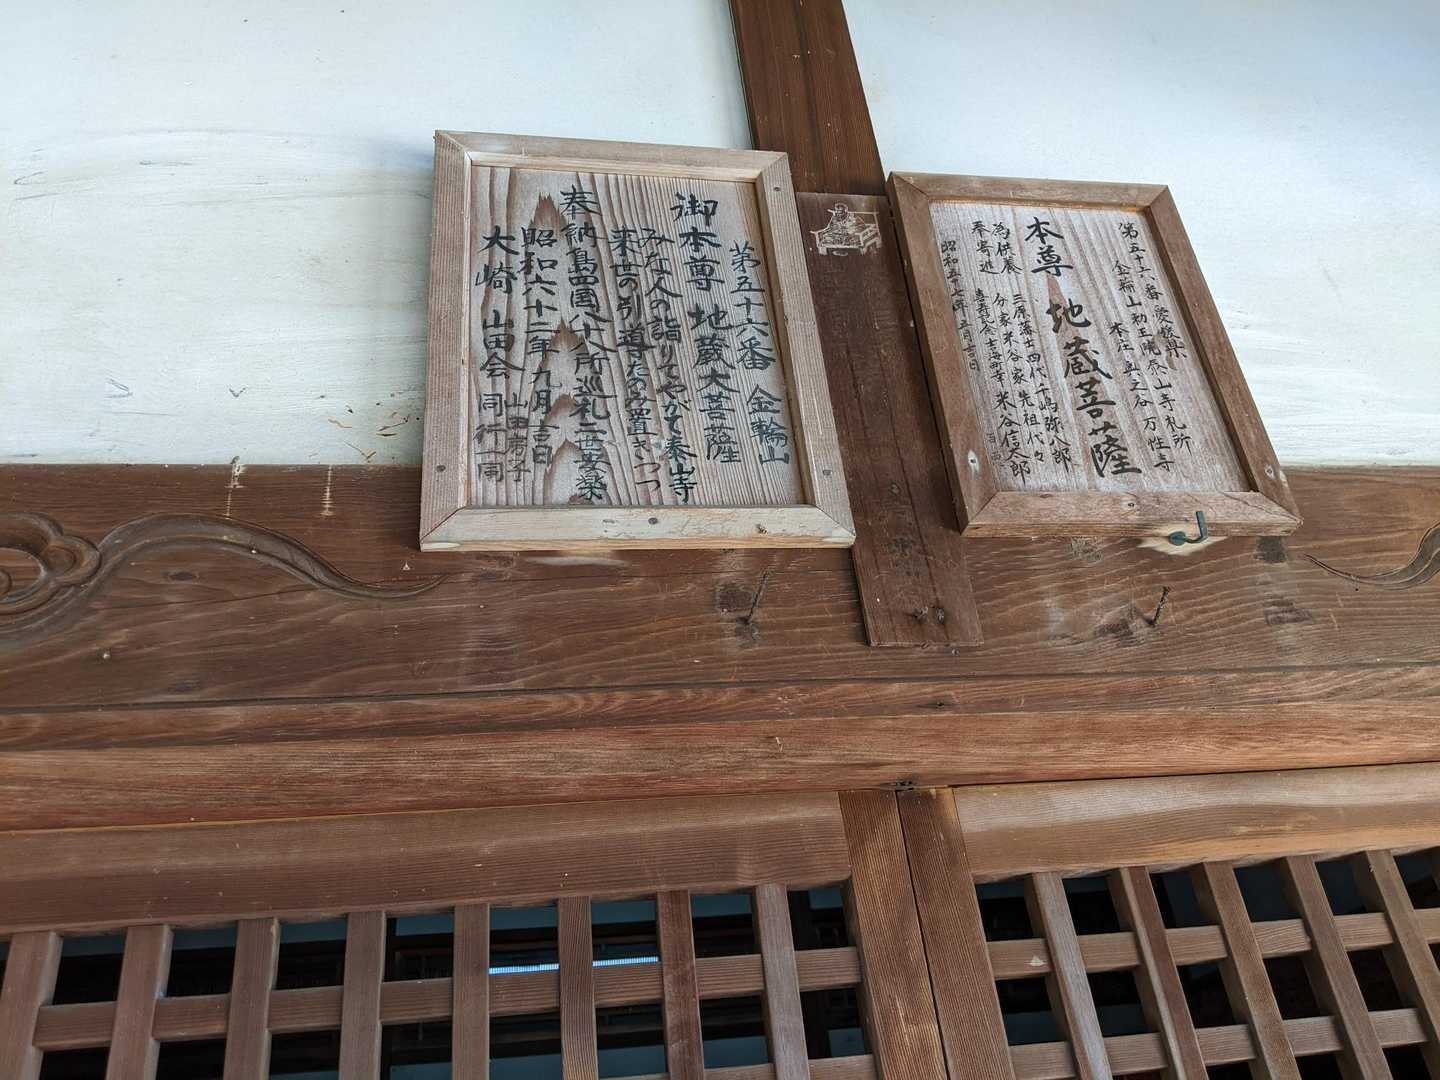 第五十六番愛媛県
金輪山勅王院泰山寺札所
本庄五之谷万性寺
本尊 地蔵菩薩
三原藩士四代千嶋弥八郎
為供養 分家米谷家先祖代々
奉寄進
米谷信太郎
第五十六番 金輪山
御本尊 地蔵大菩薩
みな人の詣りてやがて泰山寺
来世の引導たのみ置きつつ
奉納島四国八十八所巡礼二世安楽
昭和六十二年九月吉日
山田常子
大崎 山田会 同行一同